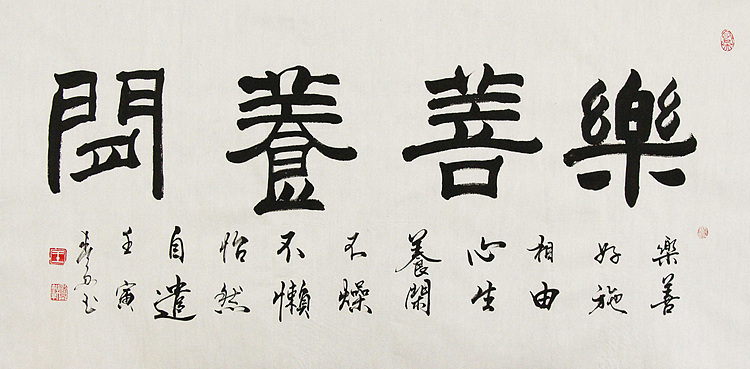 樂善養閒
樂善
好施
相由
心生
養閑
不燥
不懶
怡然
自遣
壬寅